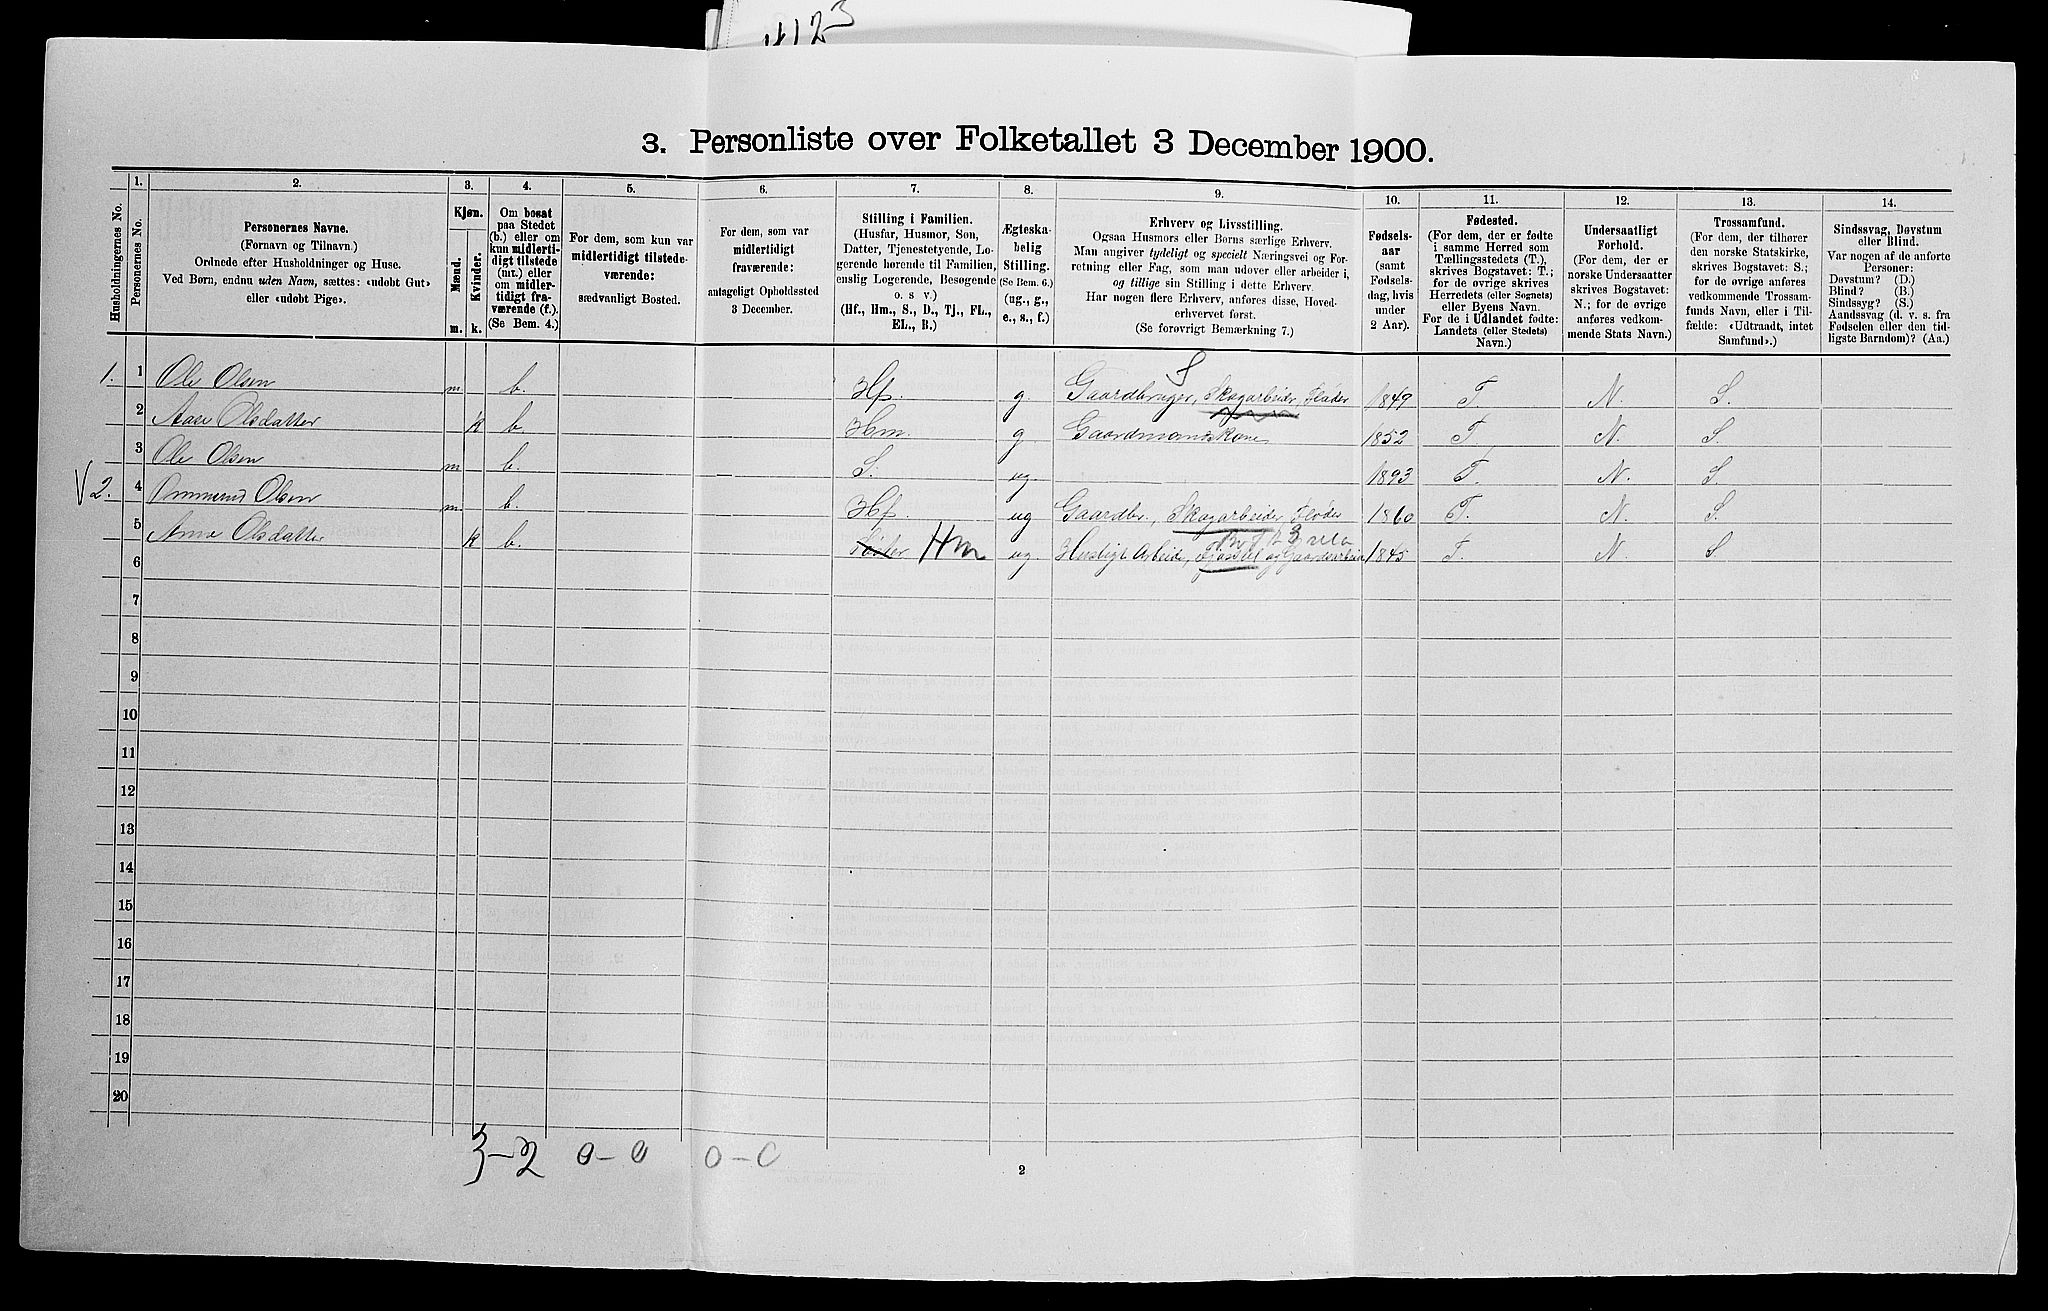 4123
3. Personliste over Folketallet 3 December 1900.
Husholdningernes No.
1.
Personernes No.
2.
Personernes Navne.
(Fornavn og Tilnavn.)
Ordnede efter Husholdninger og Huse.
Ved Børn, endnu uden Navn, sættes: «udøbt Gut»
eller «udøbt Pige».
3.
Kjøn.
Mænd.
Kvinder.
m. k.
4.
Om bosat
paa Stedet
(b.) eller om
kun midlerti-
digt tilstede
(mt.) eller
om midler-
tidigt fra-
værende (f.).
(Se Bem. 4.)
5.
For dem, som kun var
midlertidigt tilstede-
værende:
sædvanligt Bosted.
6.
For dem, som var
midlertidigt
fraværende:
antageligt Opholdssted
3 December.
7.
Stilling i Familien.
(Husfar, Husmor, Søn,
Datter, Tjenestetyende, Lo-
gerende hørende til Familien,
enslig Logerende, Besøgende
o. s v.)
(Hf., Hm., S., D., Tj., FL.,
EL., B.)
8.
Ægteska-
belig
Stilling.
(Se Bem. 6.)
(ug., g.,
e., s., f.)
9.
Erhverv og Livsstilling.
Ogsaa Husmors eller Børns særlige Erhverv.
Man angiver tydeligt og specielt Næringsvei og For-
retning eller Fag, som man udøver eller arbeider i,
og tillige sin Stilling i dette Erhverv.
Har nogen flere Erhverv, anføres disse, Hoved-
erhvervet først.
(Se forøvrigt Bemærkning 7.)
10.
Fødsels-
aar
(samt
Fødsels-
dag, hvis
under
2 Aar).
11.
Fødested.
(For dem, der er fødte
i samme Herred som
Tællingsstedets (T.),
skrives Bogstavet: T.;
for de øvrige skrives
Herredets (eller Sognets)
eller Byens Navn.
For de i Udlandet fødte:
Landets (eller Stedets)
Navn.)
12.
Undersaatligt
Forhold.
(For dem, der er
norske Undersaatter
skrives Bogstavet:
N.; for de øvrige
anføres vedkom-
mende Stats Navn.)
13.
Trossamfund.
(For dem, der tilhører
den norske Statskirke,
skrives Bogstavet: S.;
for de øvrige anføres
vedkommende Trossam-
funds Navn, eller i Til-
fælde: «Udtraadt, intet
Samfund».)
14.
Sindssvag, Døvstum
eller Blind.
Var nogen af de anførte
Personer:
Døvstum? (D.)
Blind? (B.)
Sindssyg? (S.)
Aandssvag (d. v. s. fra
Fødselen eller den tid-
ligste Barndom)? (Aa.)
S
1. 1 Ole Olsen m b. Hf. g. Gaardbruger, Skogarbeider, Fløder 1849 T. N. S.
2 Aase Olsdatter k b. Hm. g Gaardmandskone 1852 T. N. S.
3 Ole Olsen m b. S. ug. 1893 T. N. S.
V 2. 4 Ommund Olsen m b. Hf. ug Gaardbr., Skogarbeider, Fløder 1860 T. N. S.
5 Anne Olsdatter k b. Søster Hm ug. Husligt Arbeide, Fjøsstel og Gaardsarbeide 1845 T. N. S.
6
7
8
9
10
11
12
13
14
15
16
17
18
19
20
3-2 0-0 0-0
2